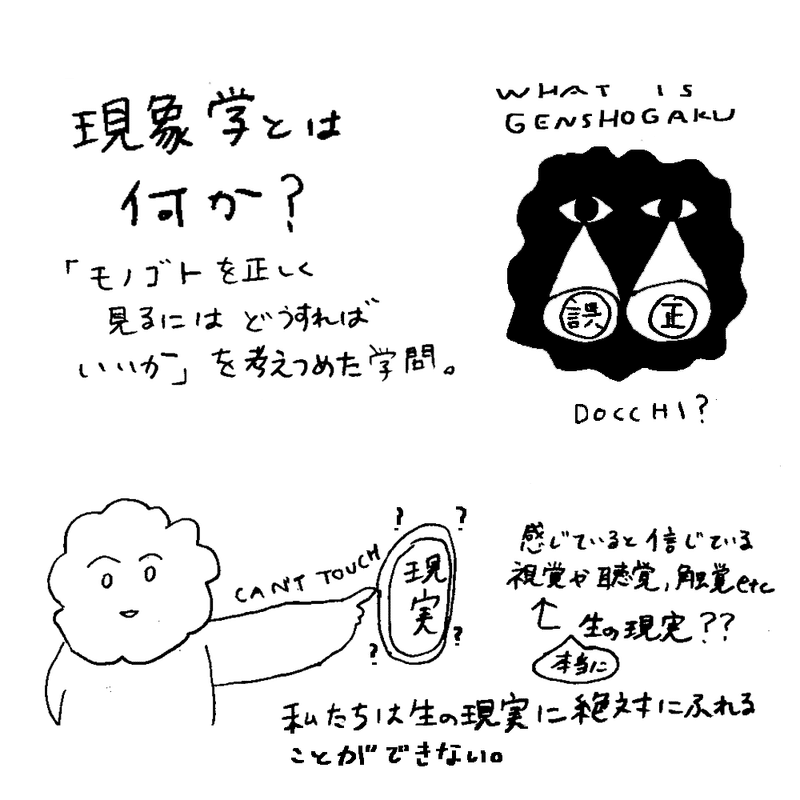 現象学とは
何か?
「モノゴトを正しく
見るにはどうすれば
いいか」を考えつめた学問。
WHAT IS
GENSHOGAKU
誤 正
DOCCHI?
CAN'T TOUCH
? ?
現
実
? ?
感じていると信じている
視覚や聴覚,触覚etc
↑ 生の現実??
本当に
私たちは生の現実に絶対にふれる
ことができない。